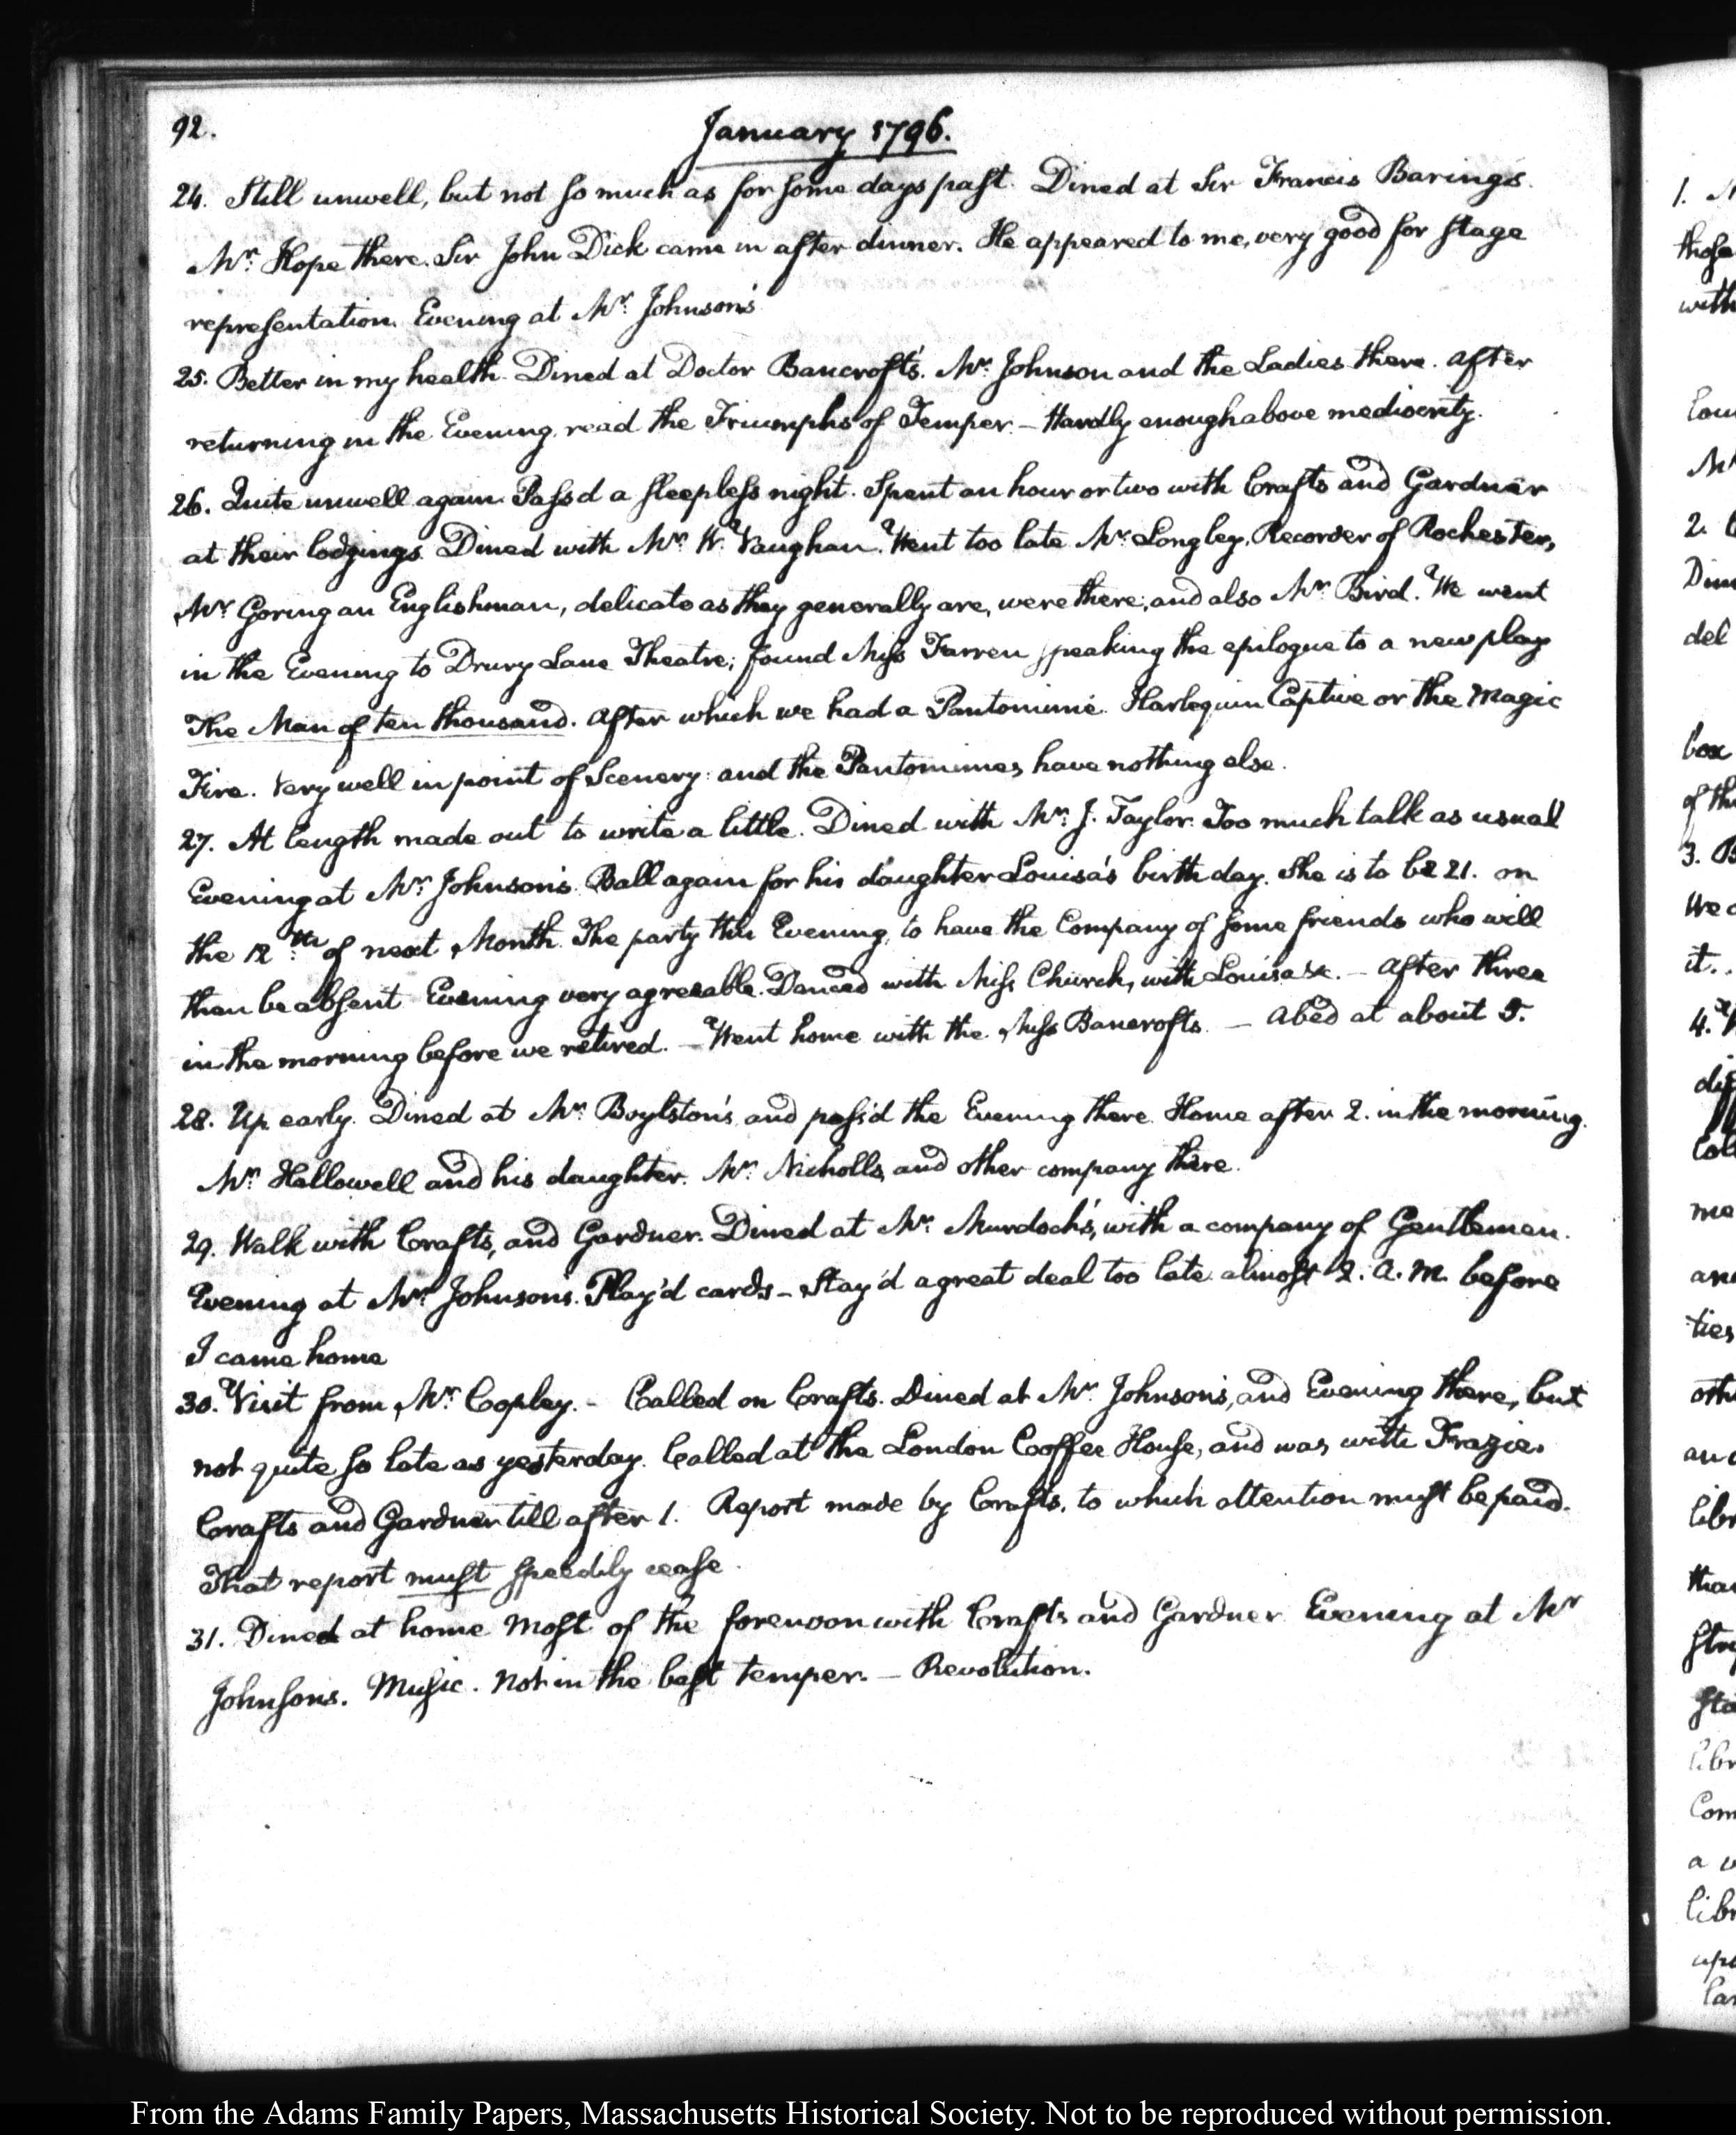 92.
January 1796.
24. Still unwell, but not so much as for some days past. Dined at Sir Francis Baring's.
Mr. Hope there. Sir John Dick came in after dinner. He appeared to me, very good for stage
representation. Evening at Mr. Johnson's
25. Better in my health. Dined at Doctor Bancroft's. Mr. Johnson and the Ladies there. After
returning in the Evening, read the Triumphs of Temper. — Hardly enough above mediocrity.
26. Quite unwell again. Pass'd a sleepless night. Spent an hour or two with Crafts and Gardner
at their lodgings. Dined with Mr. W. Vaughan. Went too late Mr. Longley, Recorder of Rochester,
Mr. Goring an Englishman, delicate as they generally are, were there; and also Mr. Bird. We went
in the Evening to Drury Lane Theatre; found Miss Farren speaking the epilogue to a new play
The Man of ten thousand. After which we had a Pantomime. Harlequin Captive or the Magic
Fire. Very well in point of Scenery: and the Pantomimes have nothing else.
27. At length made out to write a little. Dined with Mr. J. Taylor. Too much talk as usual
Evening at Mr. Johnson's. Ball again for his daughter Louisa's birth day. She is to be 21. on
the 12th. of next Month. The party this Evening, to have the Company of some friends who will
then be absent. Evening very agreeable. Danced with Miss Church, with Louisa &c. — After three
in the morning before we retired. — Went home with the Miss Bancrofts. — Abed at about 5.
28. Up early. Dined at Mr. Boylston's, and pass'd the Evening there. Home after 2. in the morning.
Mr. Hallowell and his daughter. Mr. Nicholls, and other company there.
29. Walk with Crafts, and Gardner. Dined at Mr. Murdoch's, with a company of Gentlemen.
Evening at Mr. Johnson's. Play'd cards — Stay'd a great deal too late. almost 2. A.M. before
I came home
30. Visit from Mr. Copley. — Called on Crafts. Dined at Mr. Johnson's, and Evening there, but
not quite so late as yesterday. Called at the London Cooffee House, and was with Frazier
Crafts and Gardner till after 1. Report made by Crafts, to which attention must be paid.
That report must speedily cease.
31. Dined at home most of the forenoon with Crafts and Gardner. Evening at Mr
Johnsons. Music. Not in the best temper. — Revolution.
From the Adams Family Papers, Massachusetts Historical Society. Not to be reproduced without permission.